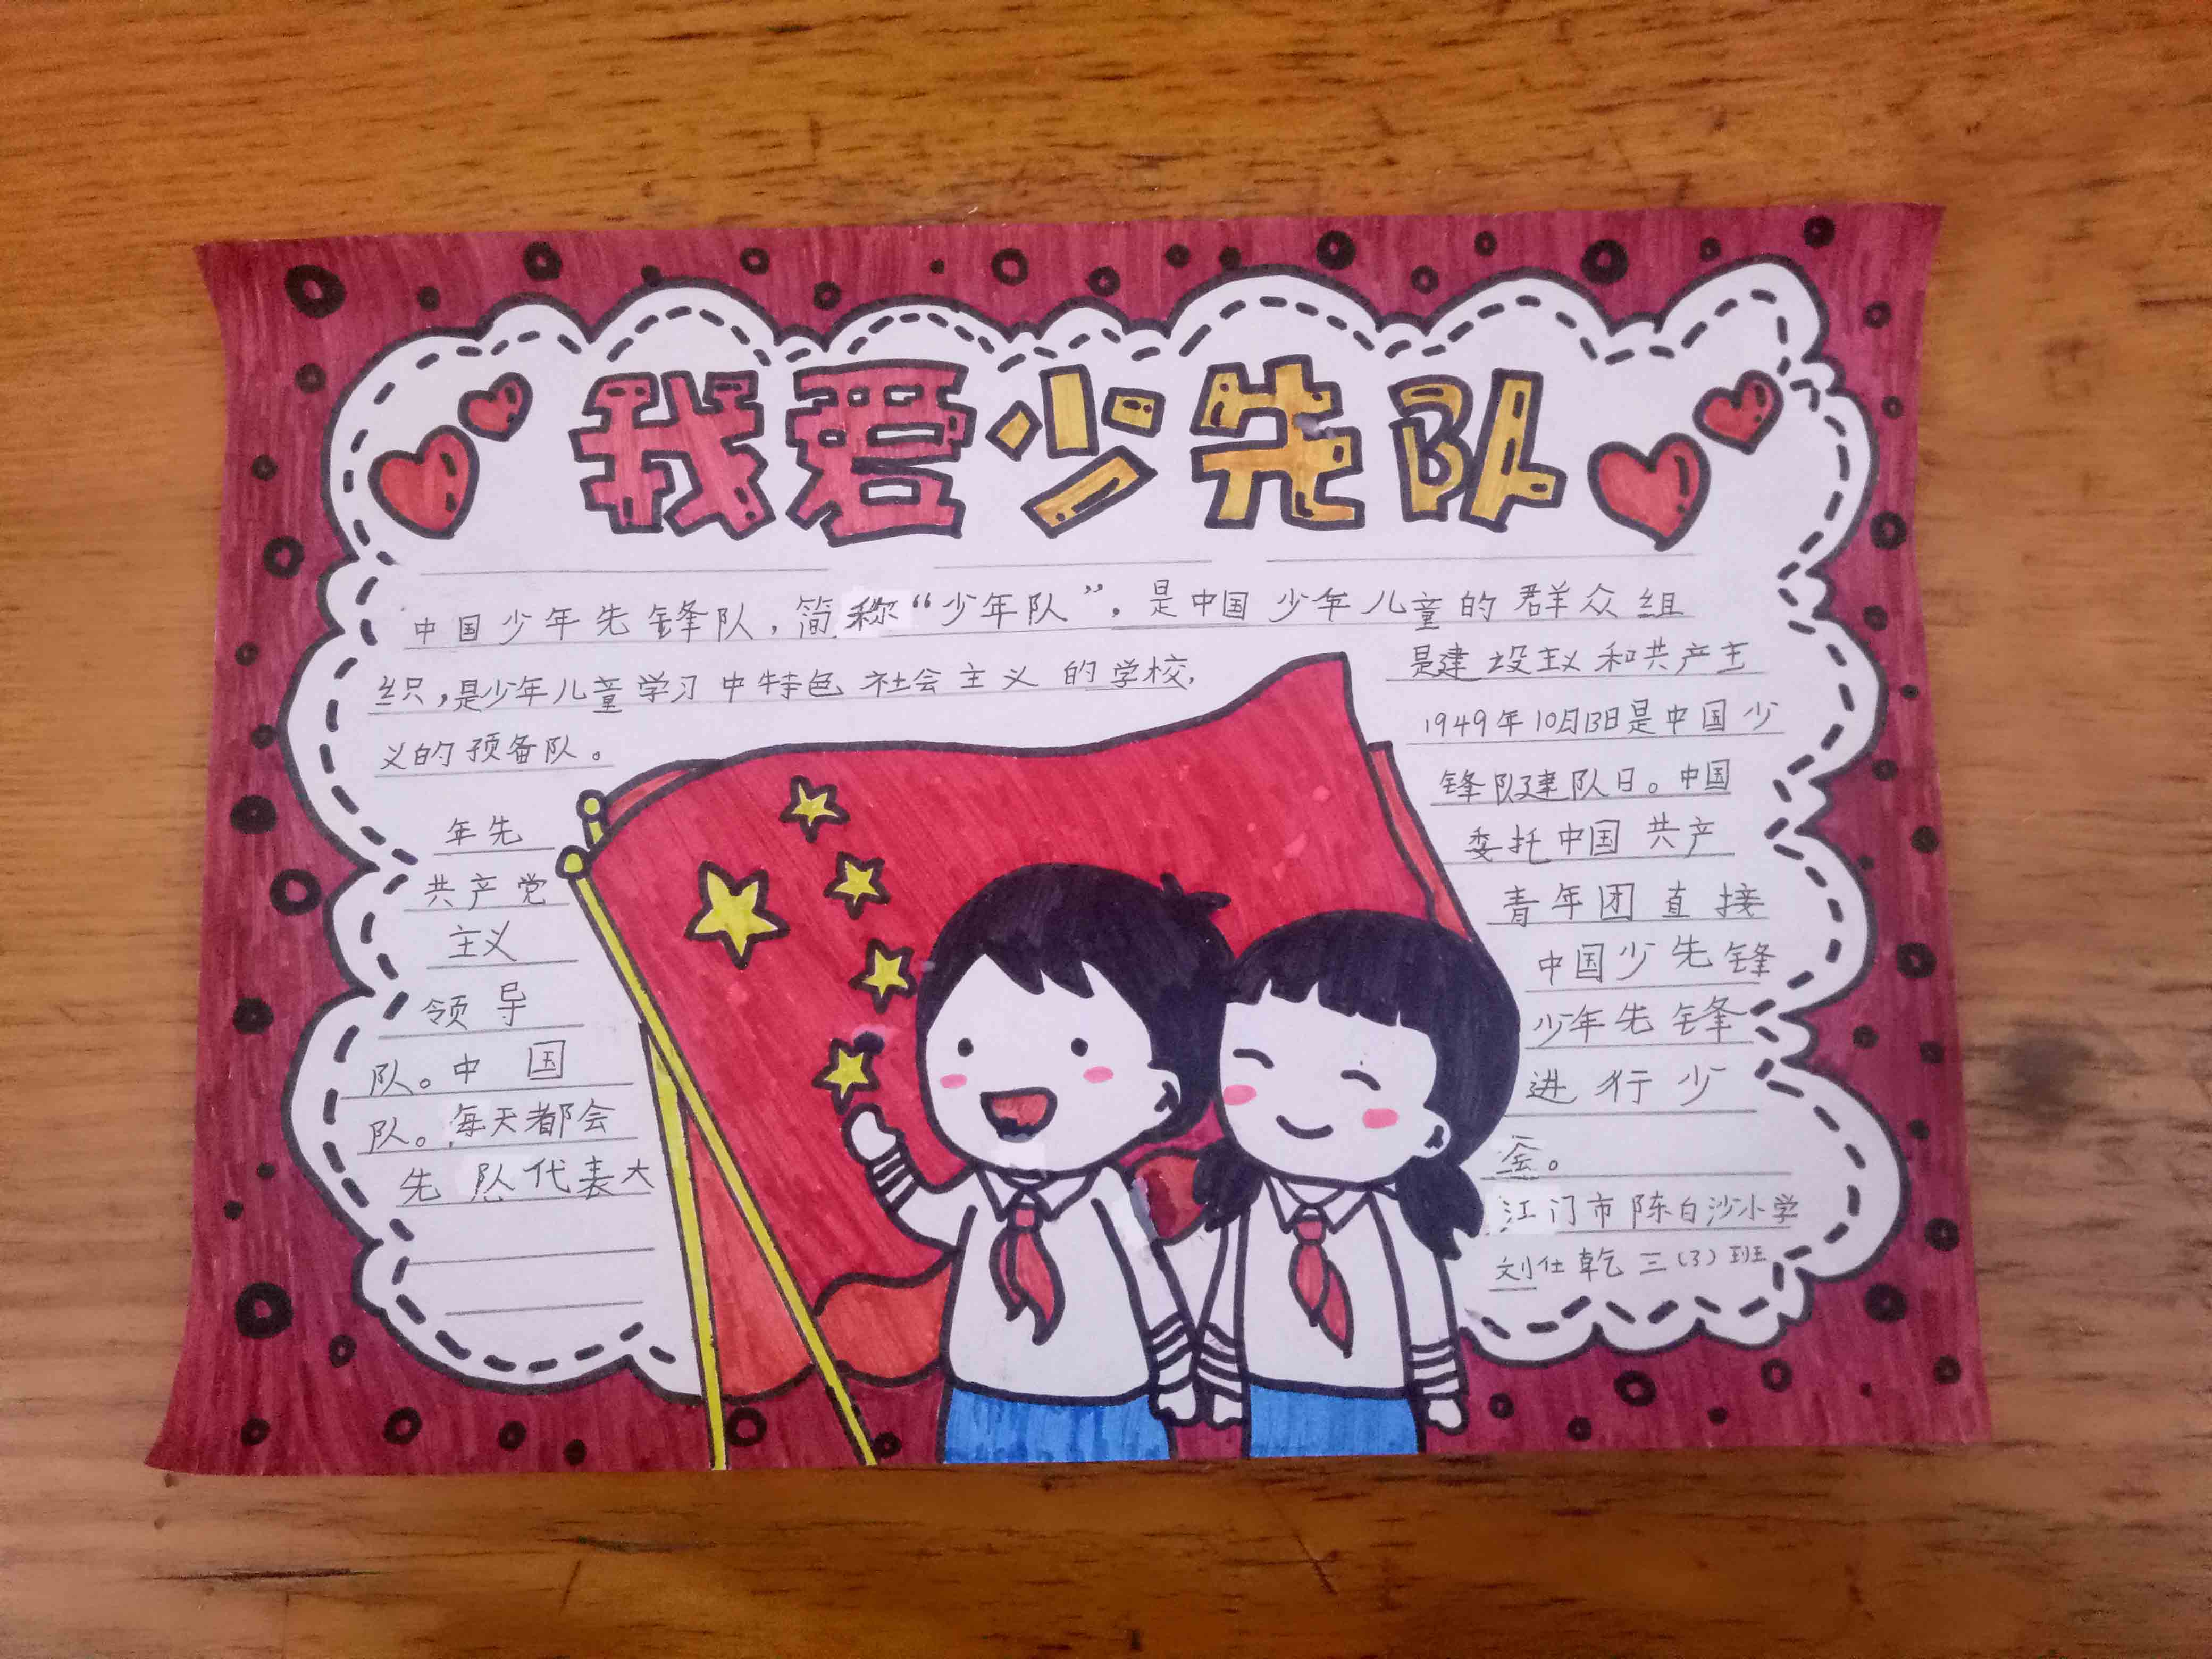 我爱少先队
中国少年先锋队，简称“少年队”，是中国少年儿童的群众组
织，是少年儿童学习中特色社会主义的学校，
是建设主义和共产主
义的预备队。
1949年10月13日是中国少
年先
锋队建队日。中国
共产党
委托中国共产
主义
青年团直接
领导
中国少先锋
队。中国
少年先锋
队。每天都会
进行少
先队代表大
江门市陈白沙小学
刘仕乾三(3)班